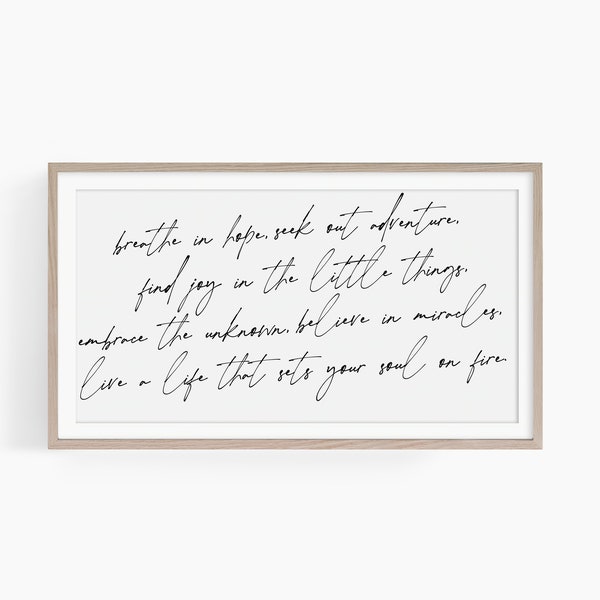 breathe in hope, seek out adventure,
find joy in the little things,
embrace the unknown, believe in miracles,
live a life that sets your soul on fire.